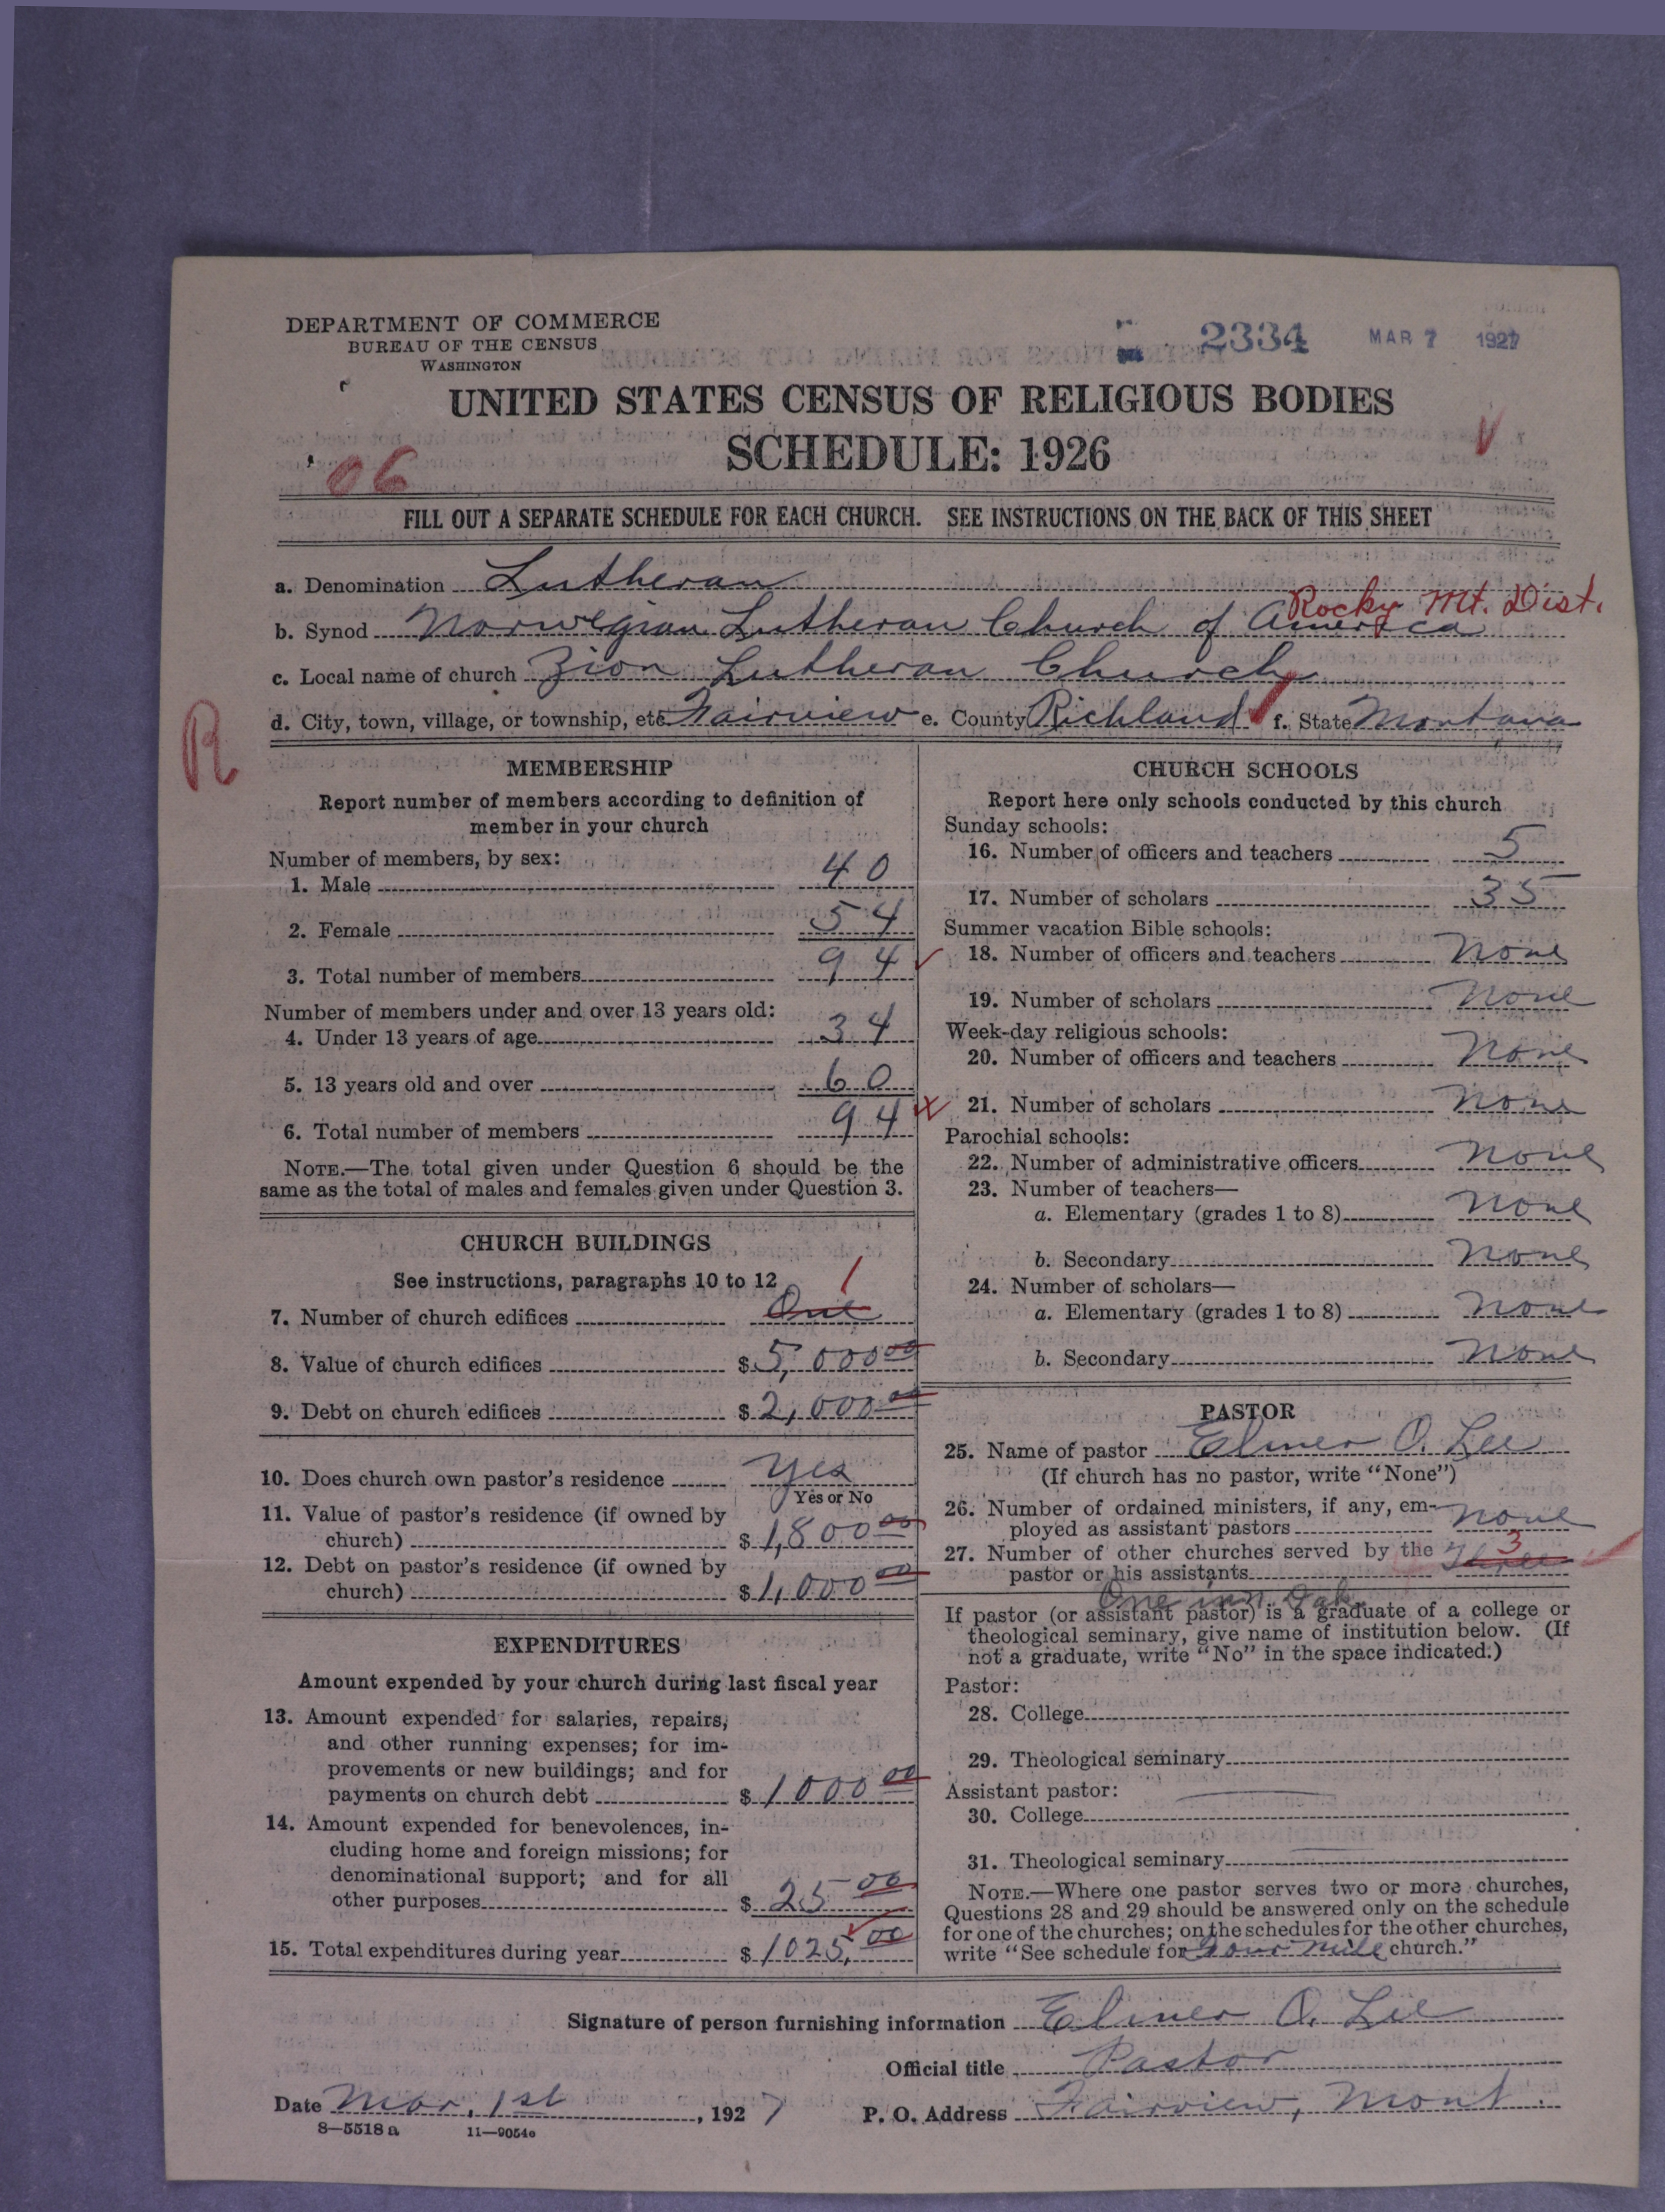 DEPARTMENT OF COMMERCE
BUREAU OF THE CENSUS
WASHINGTON
2334 MAR 7 1927
UNITED STATES CENSUS OF RELIGIOUS BODIES
SCHEDULE: 1926
06
FILL OUT A SEPARATE SCHEDULE FOR EACH CHURCH. SEE INSTRUCTIONS ON THE BACK OF THIS SHEET
a. Denomination Lutheran
Rocky Mt. Dist.
b. Synod Norwegian Lutheran Church of America
c. Local name of church Zion Lutheran Church
d. City, town, village, or township, etc. Fairview e. County Richland f. State Montana
R
MEMBERSHIP
Report number of members according to definition of
member in your church
Number of members, by sex:
1. Male 40
2. Female 54
3. Total number of members 94
Number of members under and over 13 years old:
4. Under 13 years of age 34
5. 13 years old and over 60
6. Total number of members 94
NOTE.—The total given under Question 6 should be the
same as the total of males and females given under Question 3.
CHURCH BUILDINGS
See instructions, paragraphs 10 to 12
1
7. Number of church edifices One
8. Value of church edifices $5,000 00
9. Debt on church edifices $2,000 00
10. Does church own pastor's residence Yes
Yes or No
11. Value of pastor's residence (if owned by
church) $1,800 00
12. Debt on pastor's residence (if owned by
church) $1,000 00
EXPENDITURES
Amount expended by your church during last fiscal year
13. Amount expended for salaries, repairs,
and other running expenses; for im-
provements or new buildings; and for
payments on church debt $1000 00
14. Amount expended for benevolences, in-
cluding home and foreign missions; for
denominational support; and for all
other purposes $25 00
15. Total expenditures during year $1025.00
CHURCH SCHOOLS
Report here only schools conducted by this church
Sunday schools:
16. Number of officers and teachers 5
17. Number of scholars 35
Summer vacation Bible schools:
18. Number of officers and teachers None
19. Number of scholars None
Week-day religious schools:
20. Number of officers and teachers None
21. Number of scholars None
Parochial schools:
22. Number of administrative officers None
23. Number of teachers—
a. Elementary (grades 1 to 8) None
b. Secondary None
24. Number of scholars—
a. Elementary (grades 1 to 8) None
b. Secondary None
PASTOR
25. Name of pastor Elmer O. Lee
(If church has no pastor, write "None")
26. Number of ordained ministers, if any, em-
ployed as assistant pastors None
27. Number of other churches served by the Three 3
pastor or his assistants
One in N. Dak.
If pastor (or assistant pastor) is a graduate of a college or
theological seminary, give name of institution below. (If
not a graduate, write "No" in the space indicated.)
Pastor:
28. College
29. Theological seminary
Assistant pastor:
30. College
31. Theological seminary
NOTE.—Where one pastor serves two or more churches,
Questions 28 and 29 should be answered only on the schedule
for one of the churches; on the schedules for the other churches,
write "See schedule for Four Mile church."
Signature of person furnishing information Elmer O. Lee
Official title Pastor
Date Mar. 1st, 1927 P. O. Address Fairview, Mont.
8—5518 a 11—9054c